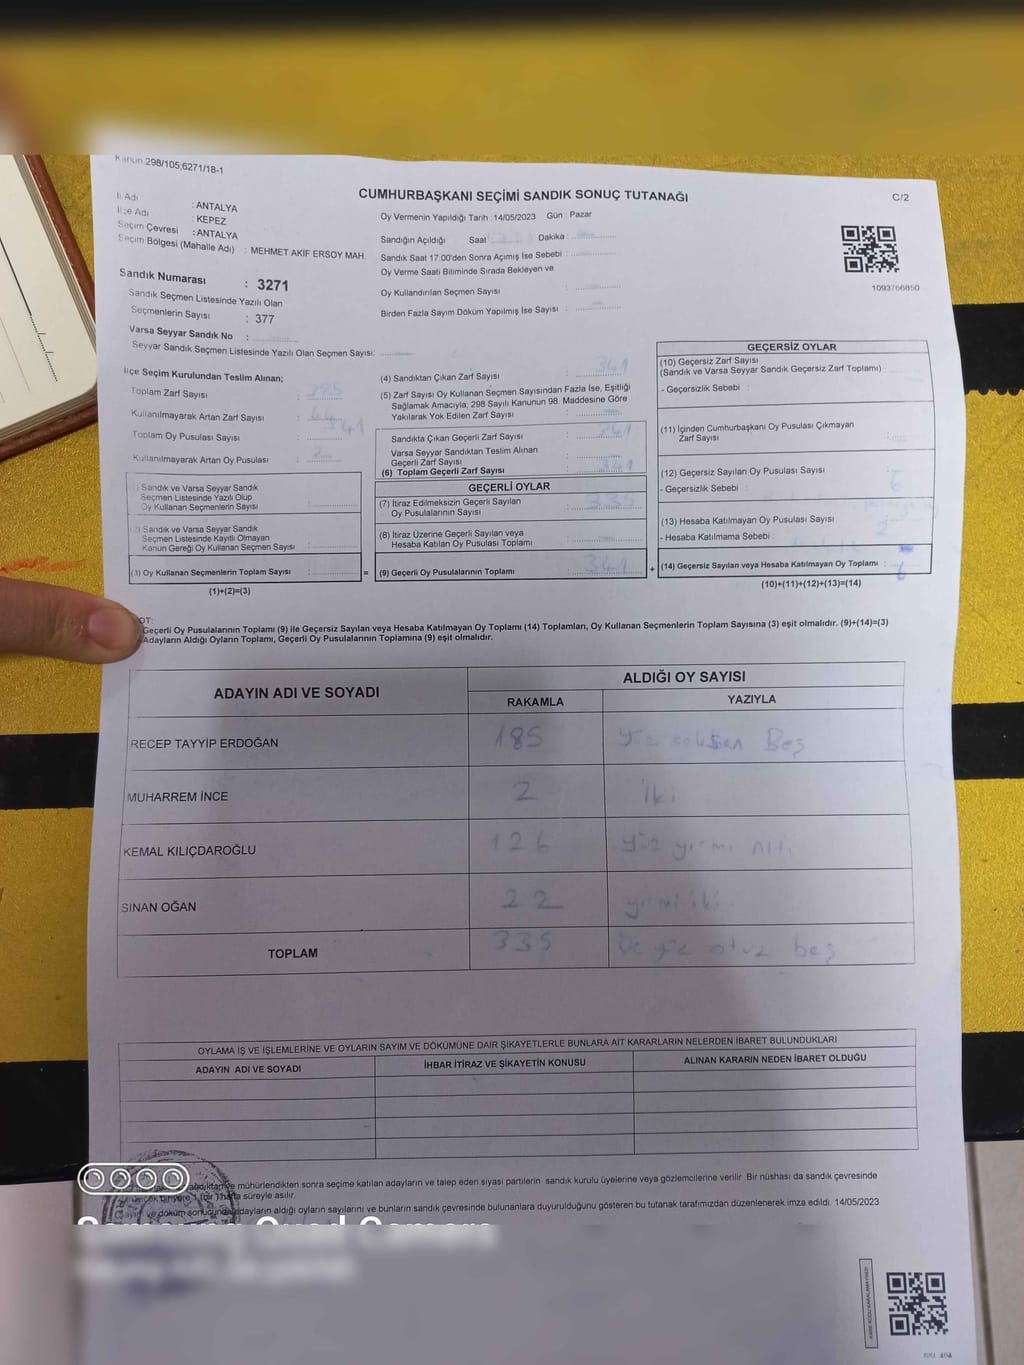 Kanun 298/105;6271/18-1
CUMHURBAŞKANI SEÇİMİ SANDIK SONUÇ TUTANAĞI
C/2
İl Adı : ANTALYA
İlçe Adı : KEPEZ
Seçim Çevresi : ANTALYA
Seçim Bölgesi (Mahalle Adı) : MEHMET AKİF ERSOY MAH.
Oy Vermenin Yapıldığı Tarih : 14/05/2023 Gün : Pazar
Sandığın Açıldığı Saat Dakika :
Sandık Saat 17.00'den Sonra Açımış İse Sebebi :
Oy Verme Saati Bitiminde Sırada Bekleyen ve
Oy Kullandırılan Seçmen Sayısı :
Birden Fazla Sayım Döküm Yapılmış İse Sayısı :
1093766850
Sandık Numarası : 3271
Sandık Seçmen Listesinde Yazılı Olan
Seçmenlerin Sayısı : 377
Varsa Seyyar Sandık No :
Seyyar Sandık Seçmen Listesinde Yazılı Olan Seçmen Sayısı:
İlçe Seçim Kurulundan Teslim Alınan;
Toplam Zarf Sayısı : 385
Kullanılmayarak Artan Zarf Sayısı : 44
Toplam Oy Pusulası Sayısı : 341
Kullanılmayarak Artan Oy Pusulası :
Sandık ve Varsa Seyyar Sandık
Seçmen Listesinde Yazılı Olup
Oy Kullanan Seçmenlerin Sayısı :
Sandık ve Varsa Seyyar Sandık
Seçmen Listesinde Kayıtlı Olmayan
Kanun Gereği Oy Kullanan Seçmen Sayısı :
(3) Oy Kullanan Seçmenlerin Toplam Sayısı : =
(1)+(2)=(3)
(4) Sandıktan Çıkan Zarf Sayısı : 341
(5) Zarf Sayısı Oy Kullanan Seçmen Sayısından Fazla İse, Eşitliği
Sağlamak Amacıyla; 298 Sayılı Kanunun 98. Maddesine Göre
Yakılarak Yok Edilen Zarf Sayısı :
Sandıkta Çıkan Geçerli Zarf Sayısı : 341
Varsa Seyyar Sandıktan Teslim Alınan
Geçerli Zarf Sayısı :
(6) Toplam Geçerli Zarf Sayısı : 341
GEÇERLİ OYLAR
(7) İtiraz Edilmeksizin Geçerli Sayılan
Oy Pusulalarının Sayısı : 335
(8) İtiraz Üzerine Geçerli Sayılan veya
Hesaba Katılan Oy Pusulası Toplamı :
(9) Geçerli Oy Pusulalarının Toplamı : 341 +
GEÇERSİZ OYLAR
(10) Geçersiz Zarf Sayısı
(Sandık ve Varsa Seyyar Sandık Geçersiz Zarf Toplamı) :
- Geçersizlik Sebebi :
(11) İçinden Cumhurbaşkanı Oy Pusulası Çıkmayan
Zarf Sayısı :
(12) Geçersiz Sayılan Oy Pusulası Sayısı : 6
- Geçersizlik Sebebi :
(13) Hesaba Katılmayan Oy Pusulası Sayısı :
- Hesaba Katılmama Sebebi :
(14) Geçersiz Sayılan veya Hesaba Katılmayan Oy Toplamı : 6
(10)+(11)+(12)+(13)=(14)
Geçerli Oy Pusulalarının Toplamı (9) ile Geçersiz Sayılan veya Hesaba Katılmayan Oy Toplamı (14) Toplamları, Oy Kullanan Seçmenlerin Toplam Sayısına (3) eşit olmalıdır. (9)+(14)=(3)
Adayların Aldığı Oyların Toplamı, Geçerli Oy Pusulalarının Toplamına (9) eşit olmalıdır.
ADAYIN ADI VE SOYADI
ALDIĞI OY SAYISI
RAKAMLA YAZIYLA
RECEP TAYYİP ERDOĞAN 185 yüz seksen Beş
MUHARREM İNCE 2 İki
KEMAL KILIÇDAROĞLU 126 yüz yirmi Altı
SİNAN OĞAN 22 yirmi iki
TOPLAM 335 üç yüz otuz beş
OYLAMA İŞ VE İŞLEMLERİNE VE OYLARIN SAYIM VE DÖKÜMÜNE DAİR ŞİKAYETLERLE BUNLARA AİT KARARLARIN NELERDEN İBARET BULUNDUKLARI
ADAYIN ADI VE SOYADI İHBAR İTİRAZ VE ŞİKAYETİN KONUSU ALINAN KARARIN NEDEN İBARET OLDUĞU
mühürlendikten sonra seçime katılan adayların ve talep eden siyasi partilerin sandık kurulu üyelerine veya gözlemcilerine verilir. Bir nüshası da sandık çevresinde
(bir) hafta süreyle asılır.
döküm sonucunda adayların aldığı oyların sayılarını ve bunların sandık çevresinde bulunanlara duyurulduğunu gösteren bu tutanak tarafımızdan düzenlenerek imza edildi. 14/05/2023
Samsung Quad Camera